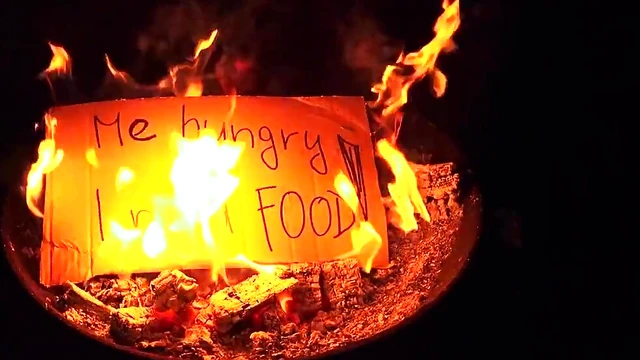 Me hungry!
I FOOD!